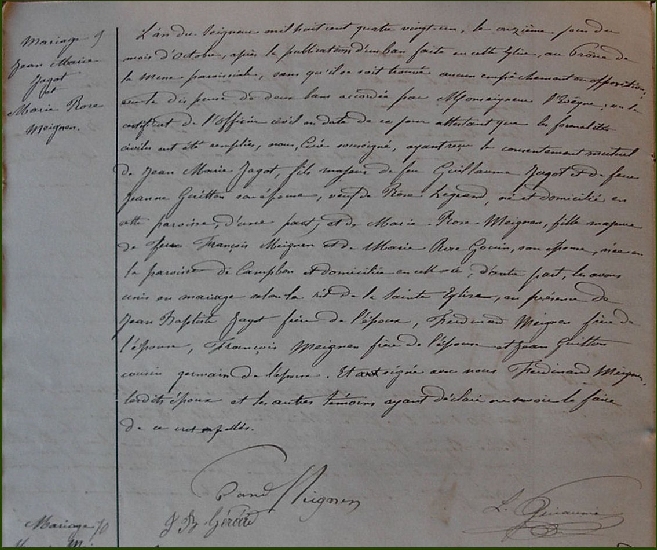 Mariage 9
Jean Marie
Jagot
et
Marie Rose
Meignen.
L'an du Seigneur mil huit cent quatre vingt-un, le onzième jour du
mois d'Octobre, après la publication d'un ban faite en cette Eglise, au Prône de
la Messe paroissiale, sans qu'il se soit trouvé aucun empêchement ou opposition,
vu la dispense de deux bans accordée par Monseigneur l'Evêque, vu le
certificat de l'Officier civil en date de ce jour attestant que les formalités
civiles ont été remplies, nous, Curé soussigné, ayant reçu le consentement mutuel
de Jean Marie Jagot, fils majeur de feu Guillaume Jagot et de feue
Jeanne Guitton son épouse, veuf de Rose Legrand, né et domicilié en
cette paroisse, d'une part; et de Marie-Rose Meignen, fille majeure
de François Meignen et de Marie Rose Gouin, son épouse, née en
la paroisse de Campbon et domiciliée en cette d'autre part, les avons
unis en mariage selon le rit de la Sainte Eglise, en présence de
Jean Baptiste Jagot frère de l'époux, Ferdinand Meignen frère de
l'épouse, François Meignen frère de l'épouse et Jean Guitton
cousin germain de l'époux. Et a signé avec nous Ferdinand Meignen,
lesdits époux et les autres témoins ayant déclaré ne savoir le faire
de ce interpellés.
Meignen
J Bte Gérard
L.
Mariage 10